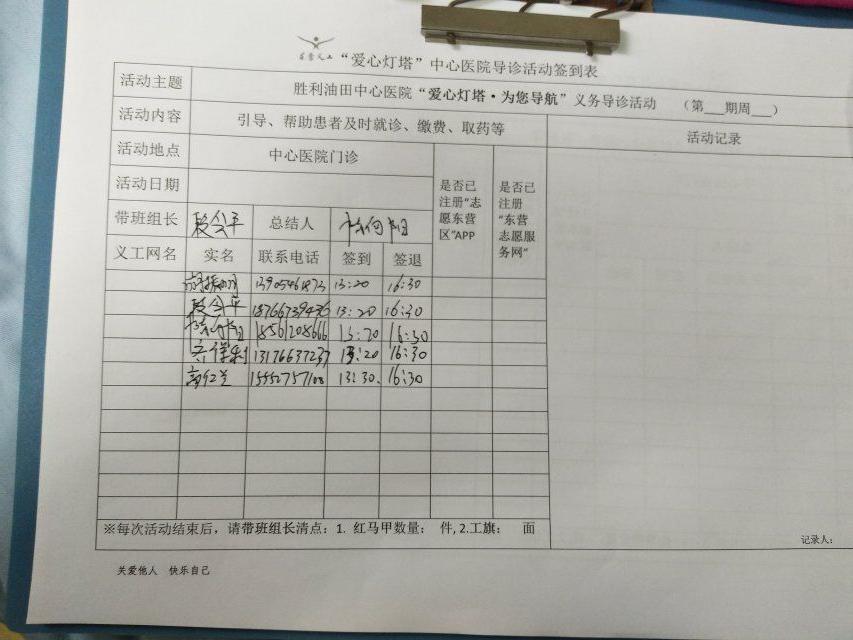 “爱心灯塔”中心医院导诊活动签到表
活动主题 胜利油田中心医院“爱心灯塔·为您导航”义务导诊活动 （第___期周___）
活动内容 引导、帮助患者及时就诊、缴费、取药等 活动记录
活动地点 中心医院门诊 是否已注册“志愿东营区”APP 是否已注册“东营志愿服务网”
活动日期
带班组长 段会平 总结人
义工网名 实名 联系电话 签到 签退
13905461873 13:20 16:30
段会平 18766739436 13:20 16:30
18561208666 13:20 16:30
13176637237 13:20 16:30
高红兰 15552757100 13:30 16:30
※每次活动结束后，请带班组长清点：1. 红马甲数量： 件, 2.工旗： 面
记录人：
关爱他人 快乐自己